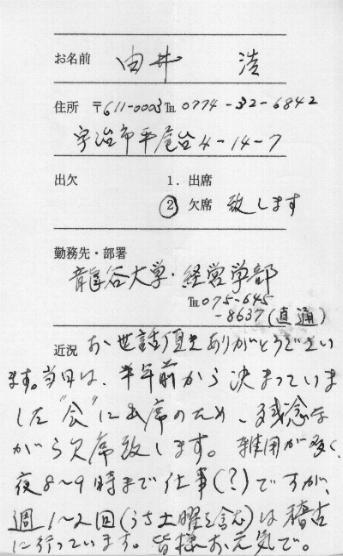 お名前 由井 浩
住所 〒611-0003 ℡ 0774-32-6842
宇治市平尾台4-14-7
出欠 1. 出席
② 欠席 致します
勤務先・部署
龍谷大学・経営学部
℡075-645
-8637(直通)
近況 お世話頂きありがとうござい
ます。当日は、半年前から決まっていま
した“会”に出席のため、残念な
がら欠席致します。雑用が多く、
夜8〜9時まで仕事(?)ですが、
週1〜2回(うち土曜を含む)は稽古
に行っています。皆様お元気で。